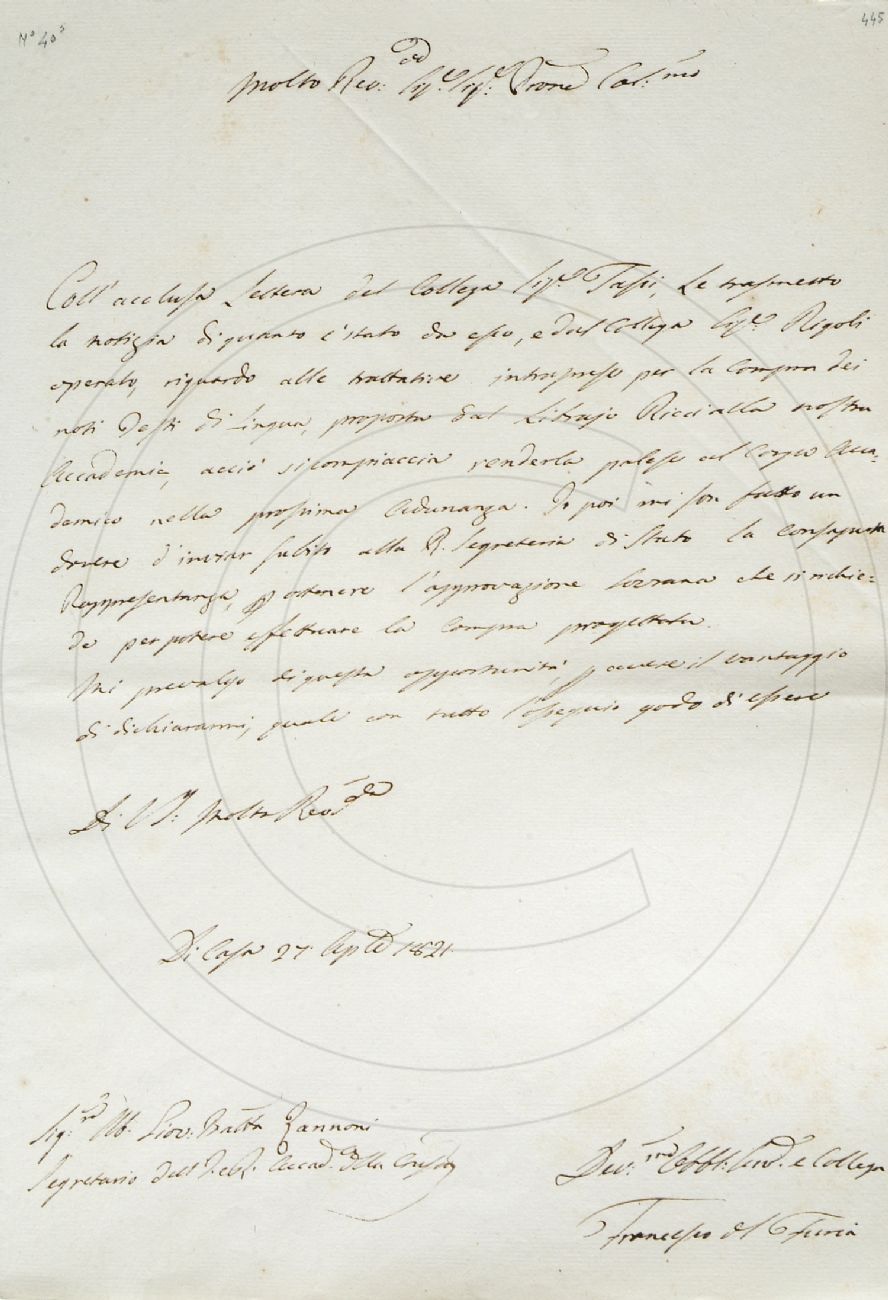 N° 40³
445
Molto Rev:do Sig:e Sig:e Prone Col:mo
Coll' acclusa Lettera del Collega Sig:e Tassi, Le trasmetto
la notizia di quanto è stato da esso, e dal Collega Sig:e Rigoli
operato, riguardo alle trattative intraprese per la compra dei
noti Testi di Lingua, proposta dal Librajo Ricci alla nostra
Accademia, acciò si compiaccia renderla palese al Corpo Acca-
demico nella prossima Adunanza. Io poi mi son fatto un
dovere d'inviar subito alla R. Segreteria di Stato la consaputa
Rappresentanza, p ottenere l'approvazione Sovrana che si richie=
de per potere effettuare la compra progettata.
Mi prevalgo di questa opportunità, p avere il vantaggio
di dichiararmi, quale con tutto l'ossequio godo di essere
Di V S: Molto Rev:da
Di Casa 27 Aple 1821.
Sig:re Ab. Giov: Batta Zannoni
Segretario dell' I. e R. Accad. della Crusca
Dev:mo Obbl: Serv. e Collega
Francesco del Furia